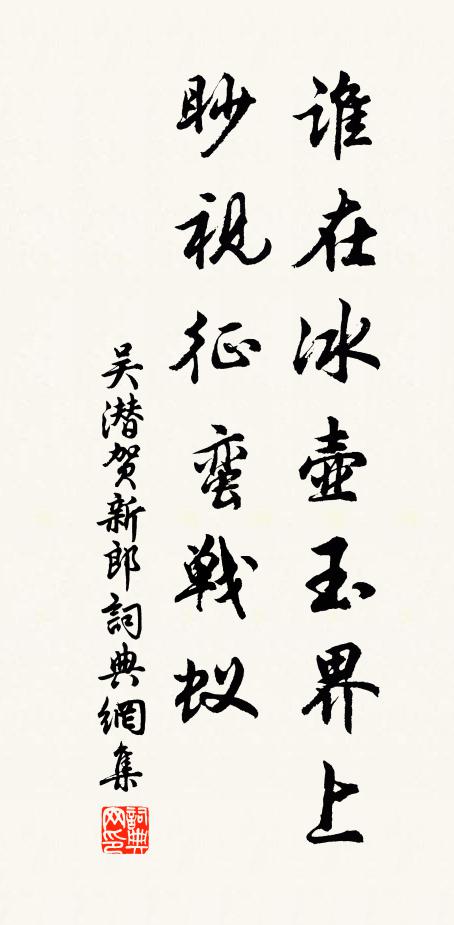 谁在冰壶玉界上
眇视征蛮戦蚁
吴潜贺新郎詞典網集
詞典网印